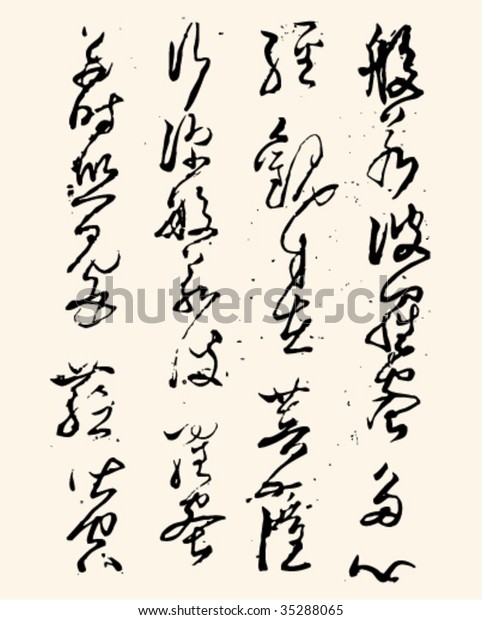 般若波羅蜜多心
經觀自在菩薩
行深般若波羅蜜
多時照見五蘊皆空
shutterstock
www.shutterstock.com · 35288065